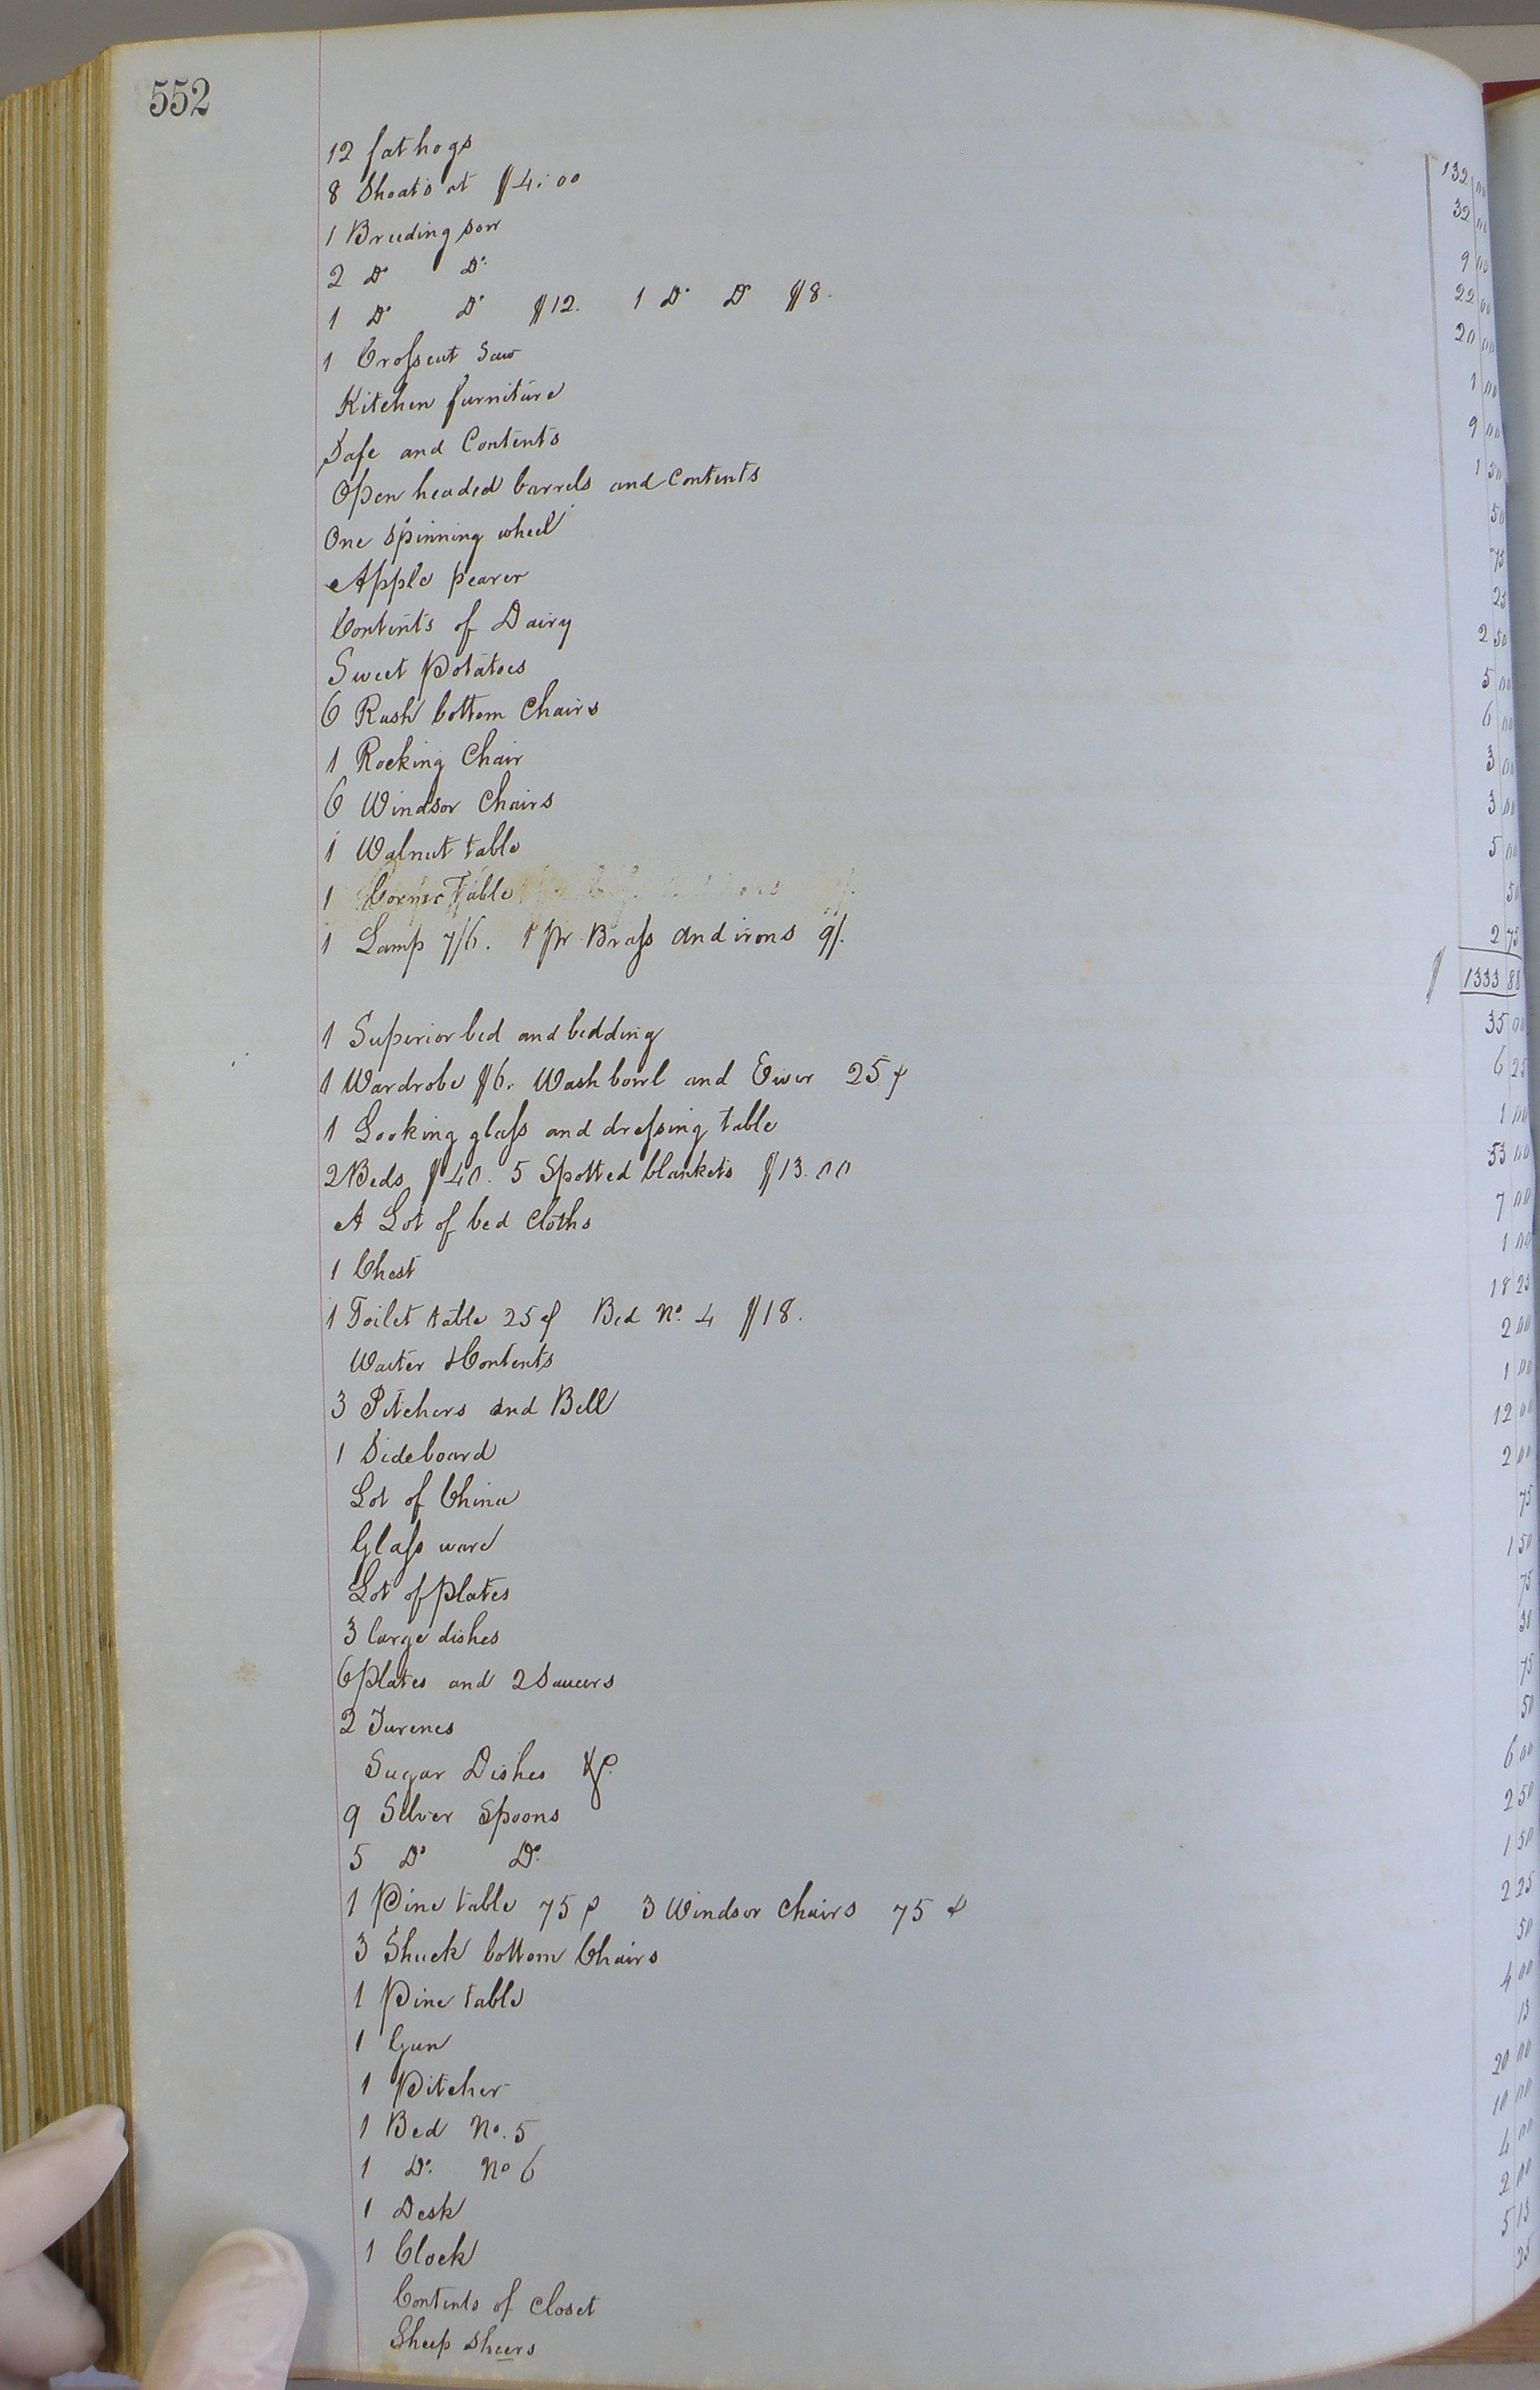 552
12 fat hogs 132 00
8 Shoats at $4.00 32 00
1 Breeding sow 9 00
2 Do Do 22 00
1 Do Do $12. 1 Do Do $8. 20 00
1 Crosscut Saw 1 00
Kitchen furniture 9 00
Safe and Contents 1 50
Open headed barrels and contents 50
One Spinning wheel 75
Apple pearer 25
Contents of Dairy 2 50
Sweet Potatoes 5 00
6 Rush bottom Chairs 6 00
1 Rocking Chair 3 00
6 Windsor Chairs 3 00
1 Walnut table 5 00
1 Corner Table 50
1 Lamp 7/6. 1 pr Brass Andirons 9/. 2 75
$ 1333 88
1 Superior bed and bedding 35 00
1 Wardrobe $6. Wash bowl and Ewer 25¢ 6 25
1 Looking glass and dressing table 1 00
2 Beds $40. 5 Spotted blankets $13.00 53 00
A Lot of bed Cloths 7 00
1 Chest 1 00
1 Toilet table 25¢ Bed No. 4 $18. 18 25
Waiter & Contents 2 00
3 Pitchers and Bell 1 00
1 Sideboard 12 00
Lot of China 2 00
Glass ware 75
Lot of plates 1 50
3 large dishes 75
6 plates and 2 Saucers 38
2 Turenes 75
Sugar Dishes &c. 50
9 Silver Spoons 6 00
5 Do Do. 2 50
1 Pine table 75¢ 3 Windsor Chairs 75¢ 1 50
3 Shuck bottom Chairs 2 25
1 Pine table 50
1 Gun 4 00
1 Pitcher 13
1 Bed No. 5 20 00
1 Do. No 6 10 00
1 Desk 4 00
1 Clock 2 00
Contents of Closet 5 13
Sheep sheers 25